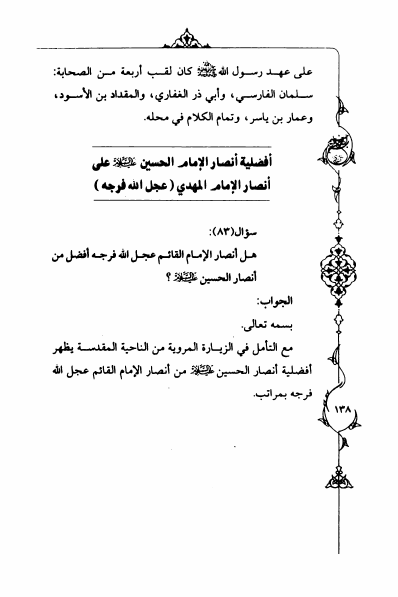 على عهد رسول الله ﷺ كان لقب أربعة من الصحابة:
سلمان الفارسي، وأبي ذر الغفاري، والمقداد بن الأسود،
وعمار بن ياسر، وتمام الكلام في محله.
أفضلية أنصار الإمام الحسين عليه السلام على
أنصار الإمام المهدي (عجل الله فرجه)
سؤال(٨٣):
هل أنصار الإمام القائم عجل الله فرجه أفضل من
أنصار الحسين عليه السلام ؟
الجواب:
بسمه تعالى.
مع التأمل في الزيارة المروية من الناحية المقدسة يظهر
أفضلية أنصار الحسين عليه السلام من أنصار الإمام القائم عجل الله
فرجه بمراتب.
١٣٨